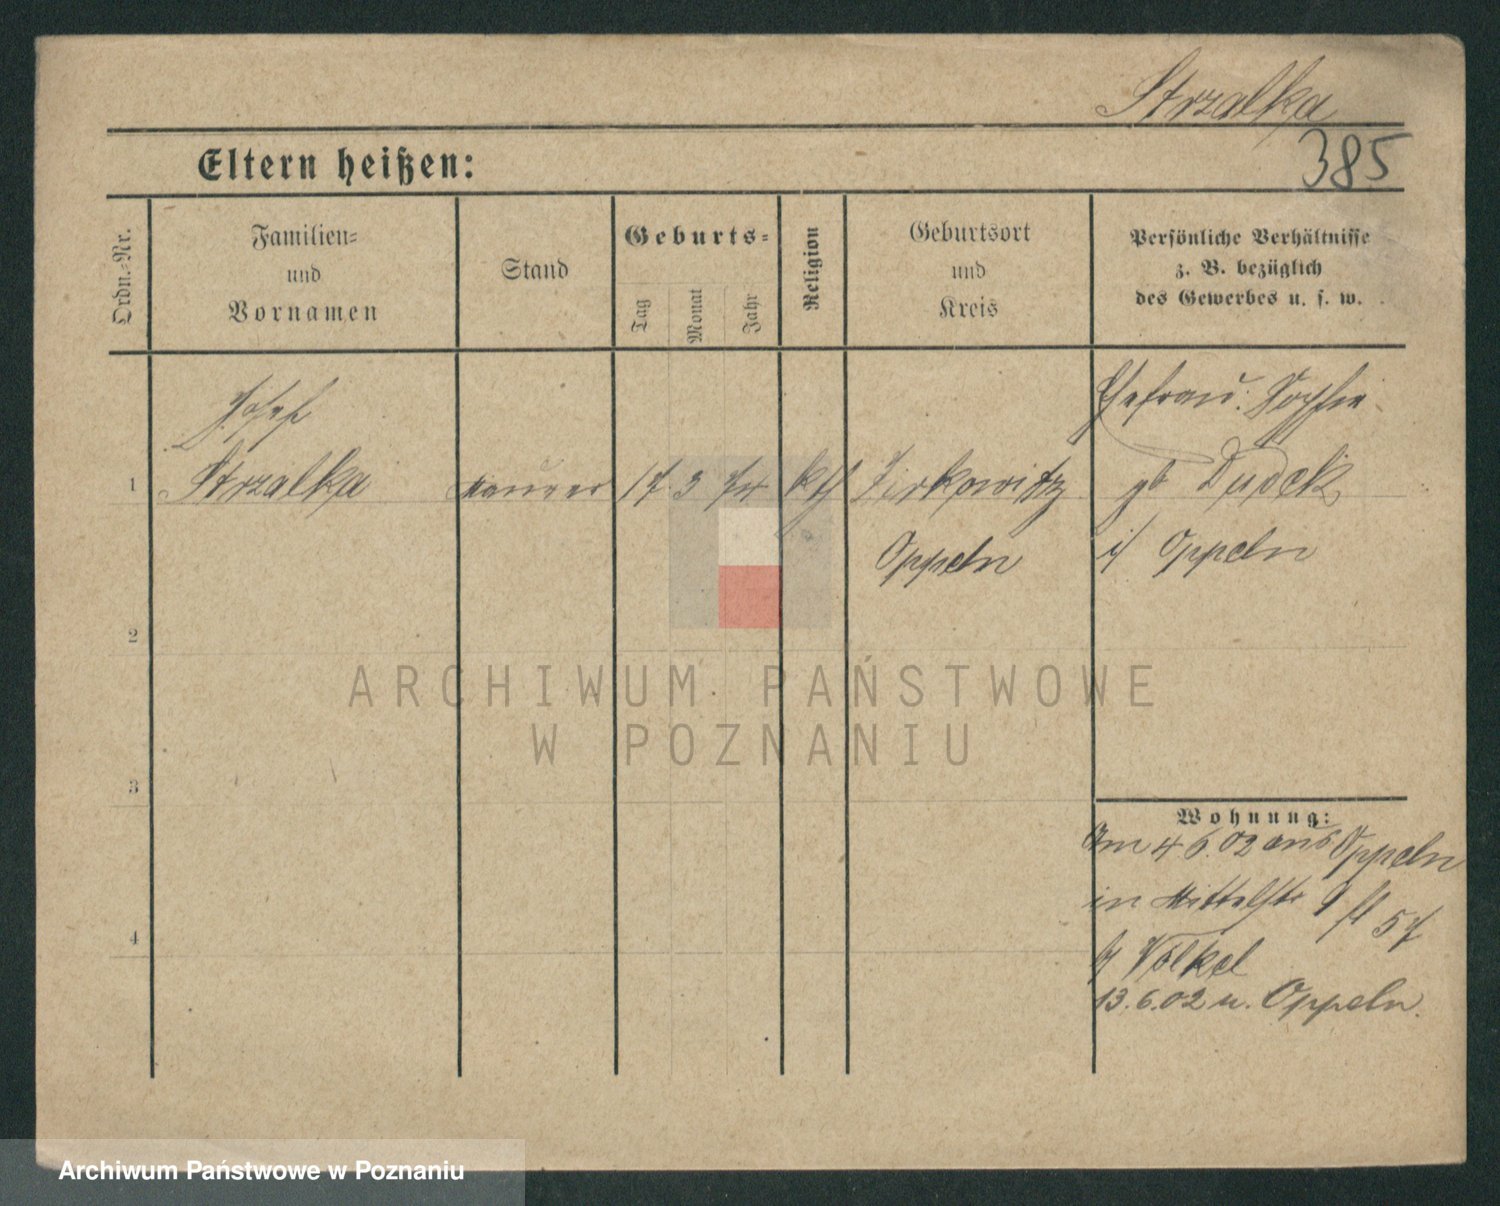 Strzalka
385
Eltern heißen:
Ordn.-Nr.
Familien-
und
Vornamen
Stand
Geburts-
Tag
Monat
Jahr
Religion
Geburtsort
und
Kreis
Persönliche Verhältnisse
z. B. bezüglich
des Gewerbes u. s. w.
Josef
Ehefrau: Sophie
1 Strzalka Maurer 17 3 74 kth Zirkowitz gb Dudek
Oppeln
i/ Oppeln
2
ARCHIWUM PAŃSTWOWE
W POZNANIU
3
Wohnung:
Am 4 6. 02 aus Oppeln
in Mittelstr 9 57
b/ Völkel
4
13.6.02 u. Oppeln.
Archiwum Państwowe w Poznaniu